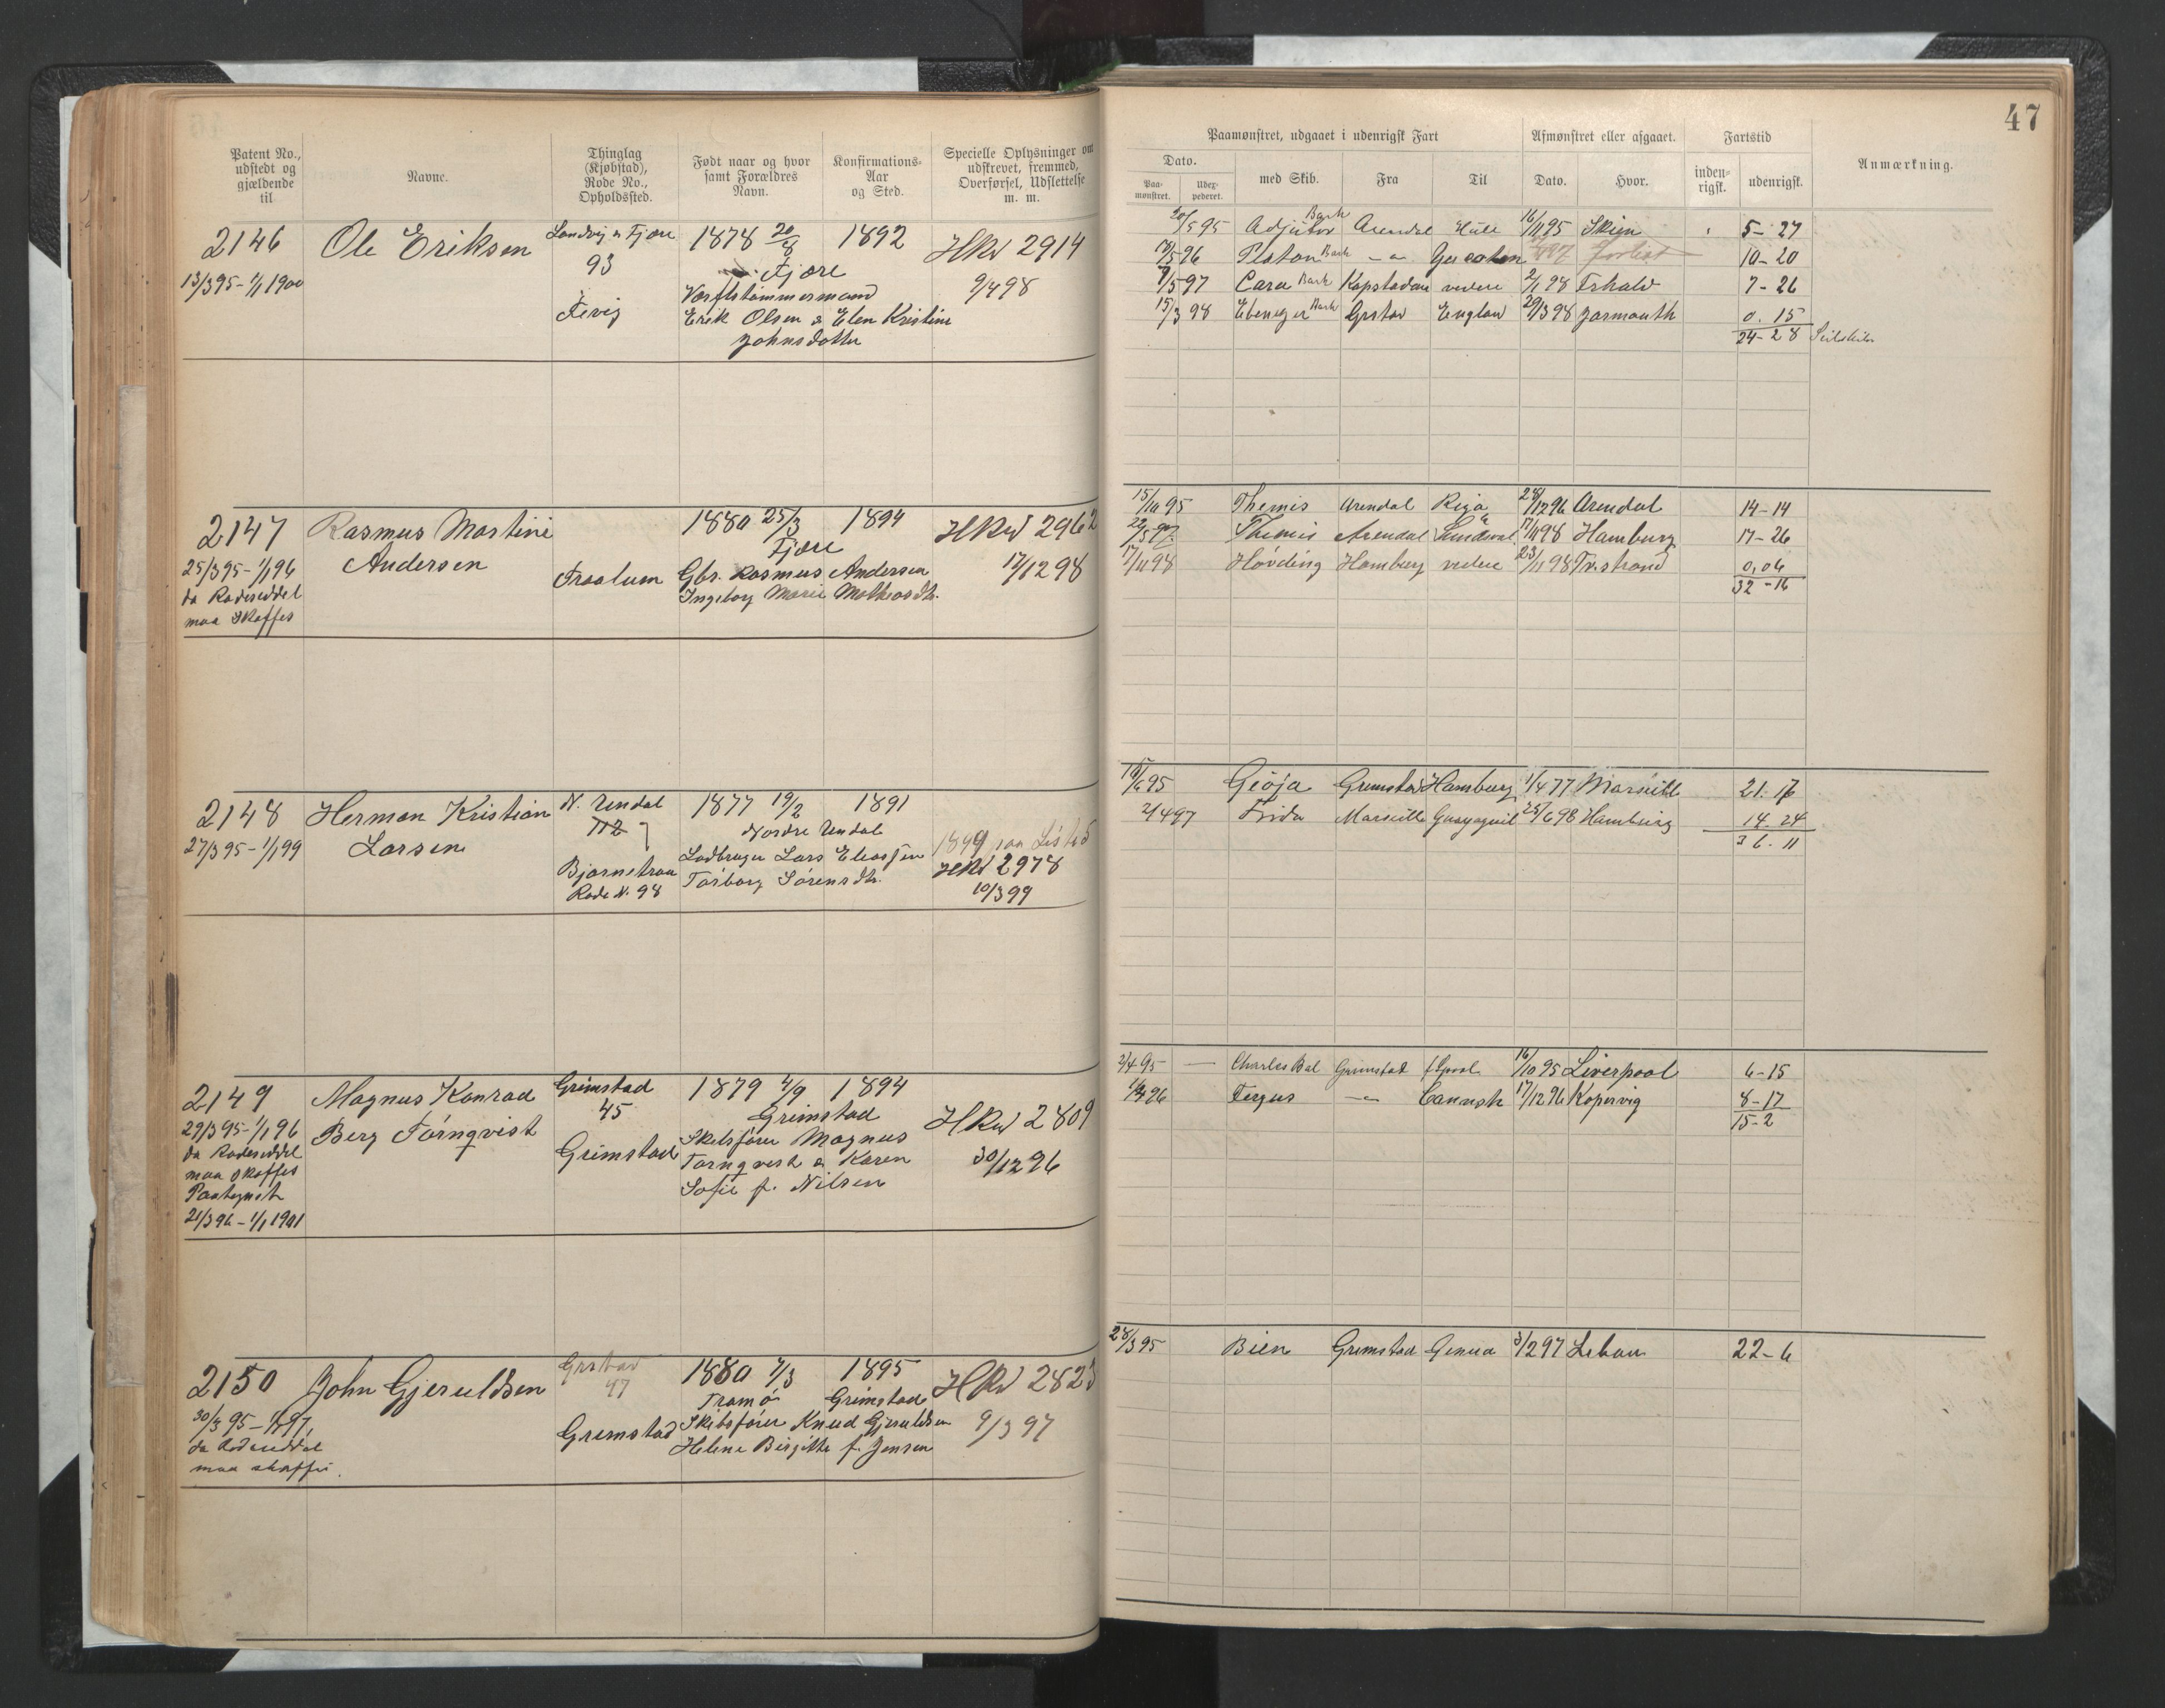 47
Patent No., udstedt og gjældende til
Navne.
Thinglag (Kjøbstad), Rode No., Opholdssted.
Født naar og hvor samt Forældres Navn.
Konfirmations- Aar og Sted.
Specielle Oplysninger om udskrevet, fremmed, Overførsel, Udslettelse m. m.
Paamønstret, udgaaet i udenrigsk Fart
Afmønstret eller afgaaet.
Fartstid
Anmærkning.
Dato.
Paa- mønstret.
Udex- pederet.
med Skib.
Fra
Til
Dato.
Hvor.
inden- rigsk.
udenrigsk.
2146 Ole Eriksen Landvig & Fjære 1878 20/8 1892 HRul 2914
13/3 95 - 1/1 1900 93 Fjære 9/4 98
Fevig Værftstømmermand
Erik Olsen & Elen Kristine
Johnsdatter
20/5 95 Adjutor Bark Arendal Hull 16/11 95 Skien 5-27
Platon Bark -"- 10-20
7/5 97 Cara Bark Kapstaden videre 2/1 98 Frhald 7-26
15/3 98 Ebenezer Bark Grstad England 29/3 98 Jarmouth 0.15
24-28
2147 Rasmus Martini 1880 25/3 1894 HRul 2962
25/3 95 - 1/1 96 Andersen Fjære 17/12 98
da Rodeseddel Traalum Gbr. Rasmus Andersen
maa skaffes Ingeborg Marie Mathiasdtr.
15/10 95 Themis Arendal Riga 28/12 96 Arendal 14-14
Themis Arendal 17/11 98 Hamburg 17-26
17/11 98 Høvding Hamburg videre 23/11 98 Tv.strand 0,06
32-16
2148 Herman Kristian N. Undal 1877 19/2 1891
27/3 95 - 1/1 99 Larsen 112 Nordre Undal
Bjørnstraa Ladbruger Lars Eliassen 1899
Rode N. 98 Tarborg Sørensdtr. HRul 2978
10/3 99
Gioja Grimstad Hamburg Marseille 21.16
21/4 97 Frida Marseille Guayaquil 25/6 98 Hamburg 14.24
36.11
2149 Magnus Konrad Grimstad 1879 4/9 1894
29/3 95 - 1/1 96 Berg Törnqvist 45 Grimstad HRul 2809
da Rodeseddel Grimstad Skibsfører Magnus 30/12 96
maa skaffes Tørnqvist & Karen
Paategnet Sofie f. Nilsen
21/3 96 - 1/1 1901
2/4 95 — Charles Bal Grimstad 16/10 95 Liverpool 6-15
Fergus -"- 17/12 96 Kopervig 8-17
15-2
2150 John Gjeruldsen Grstad 1880 7/3 1895 HRul 2823
47 Tromø Grimstad
da Rodeseddel Grimstad Skibsfører Knud Gjeruldsen 9/3 97
maa skaffes. Helene Birgitte f. Jensen
28/3 95 Bien Grimstad Genua 3/2 97 Lebau 22-6